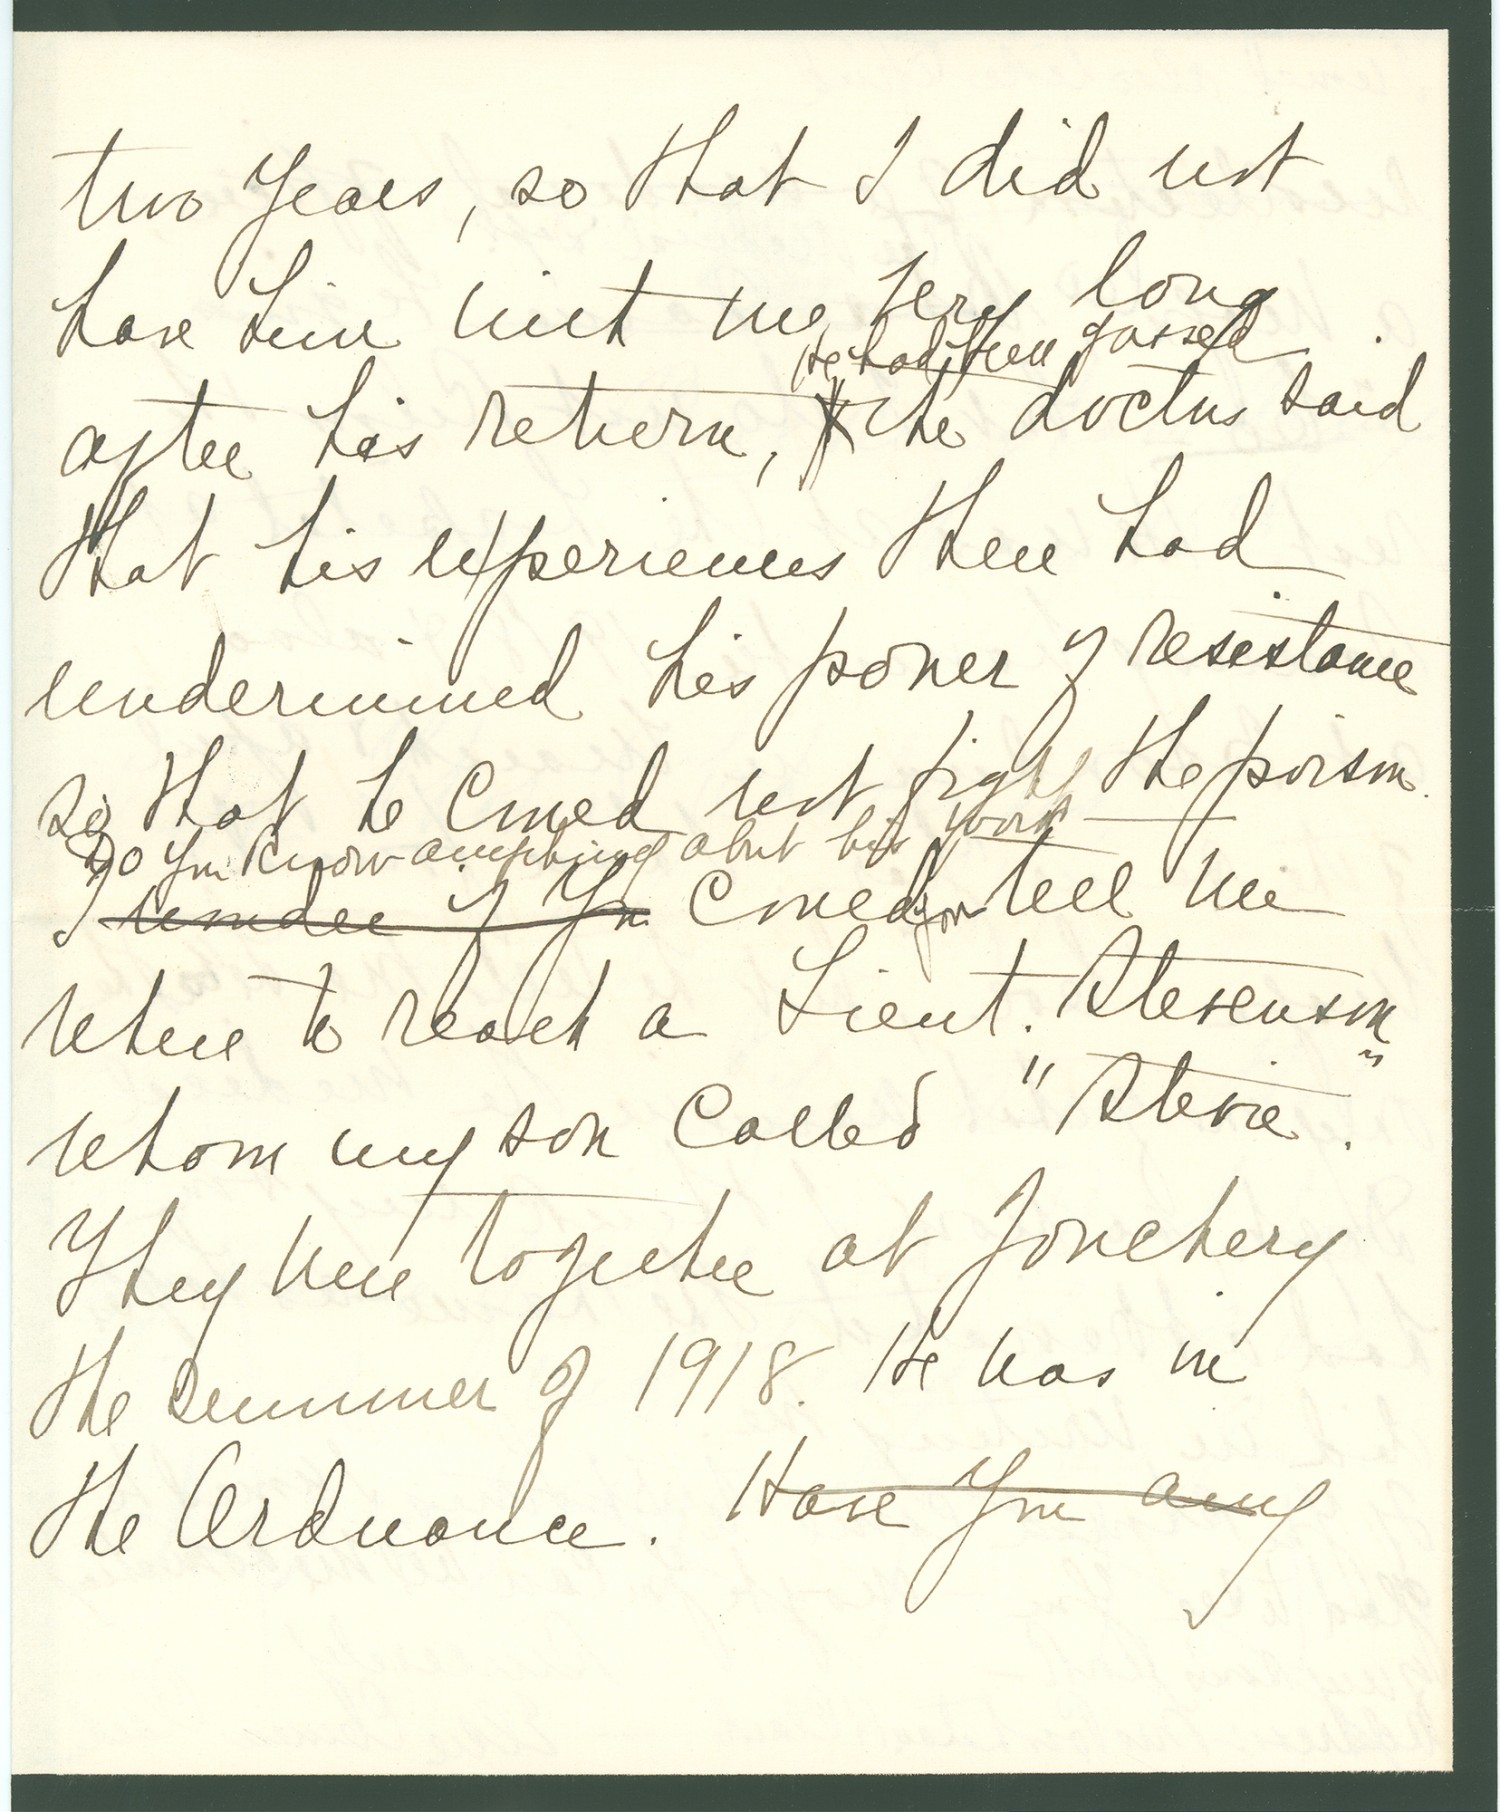 two years, so that I did not
have him with me very long
He had been gassed
after his return, & the doctors said
that his experiences there had
undermined his power of resistance
so that he could not fight the poison.
Do you know anything about his work
I wonder if you Could you tell me
where to reach a Lieut. Stevenson
whom my son called "Stevie".
They were together at Jonchery
the summer of 1918. He was in
the Ordnance. Have you any